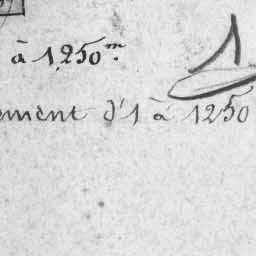 à 1,250m.
1
ement d'1 à 1250